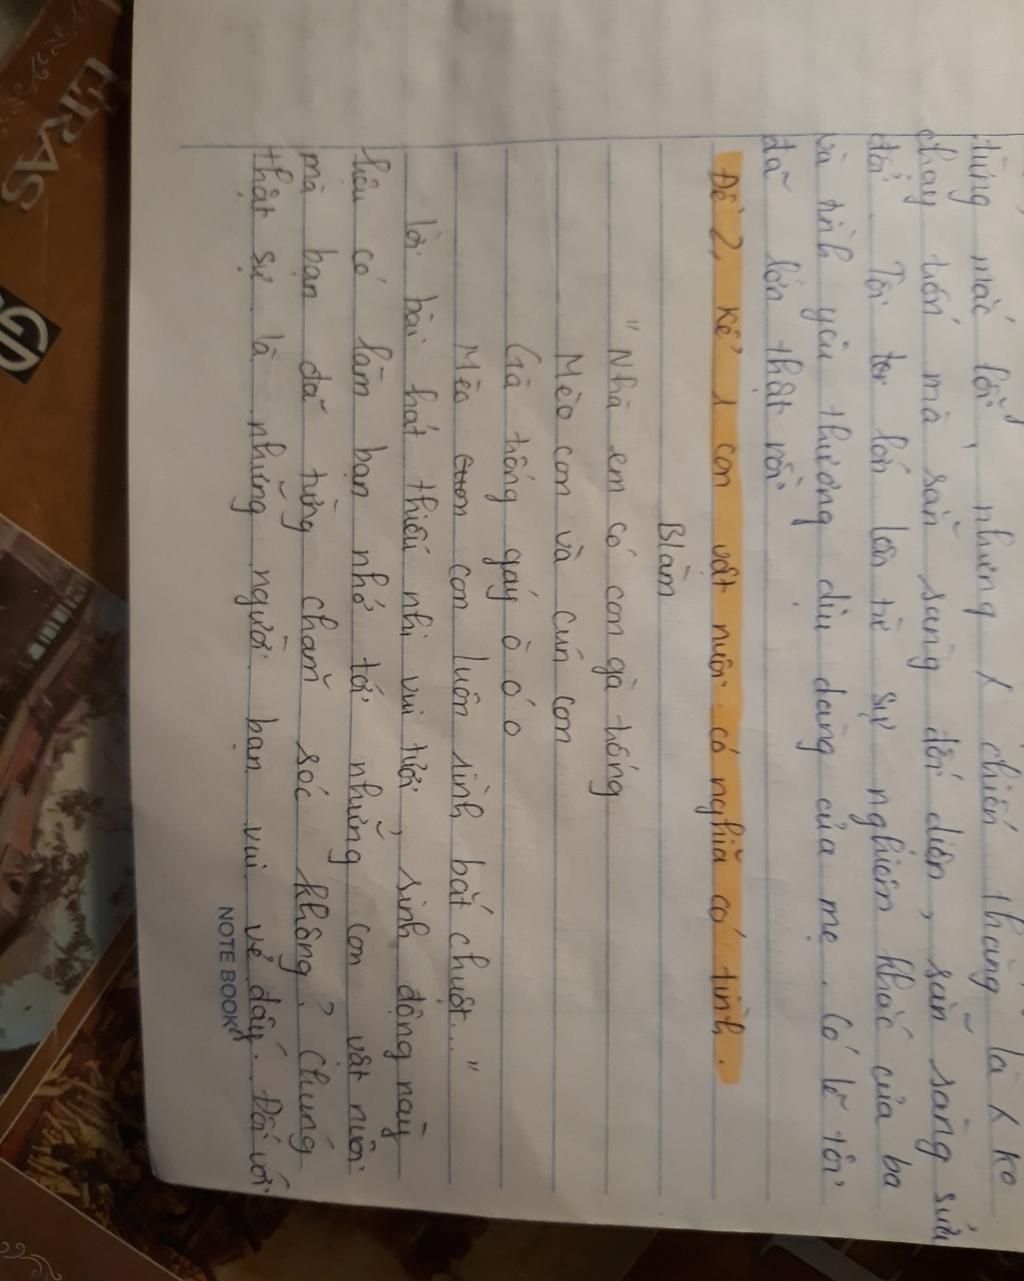 từng mắc lỗi, nhưng 1 chiến thắng là 1 ko
chạy trốn mà sẵn sàng đối diện, sẵn sàng sửa
đổi. Tôi lớn lên từ sự nghiêm khắc của ba
và tình yêu thương dịu dàng của mẹ. Có lẽ tôi
đã lớn thật rồi.
Đề 2, Kể 1 con vật nuôi có nghĩa có tình.
Blàm
"Nhà em có con gà trống
Mèo con và cún con
Gà trống gáy ò ó o
Mèo con luôn rình bắt chuột..."
lời bài hát thiếu nhi vui tươi, sinh động này
liệu có làm bạn nhớ tới những con vật nuôi
mà bạn đã từng chăm sóc không? Chúng
thật sự là những người bạn vui vẻ đấy. Đối với
NOTE BOOK
ERAS
GD